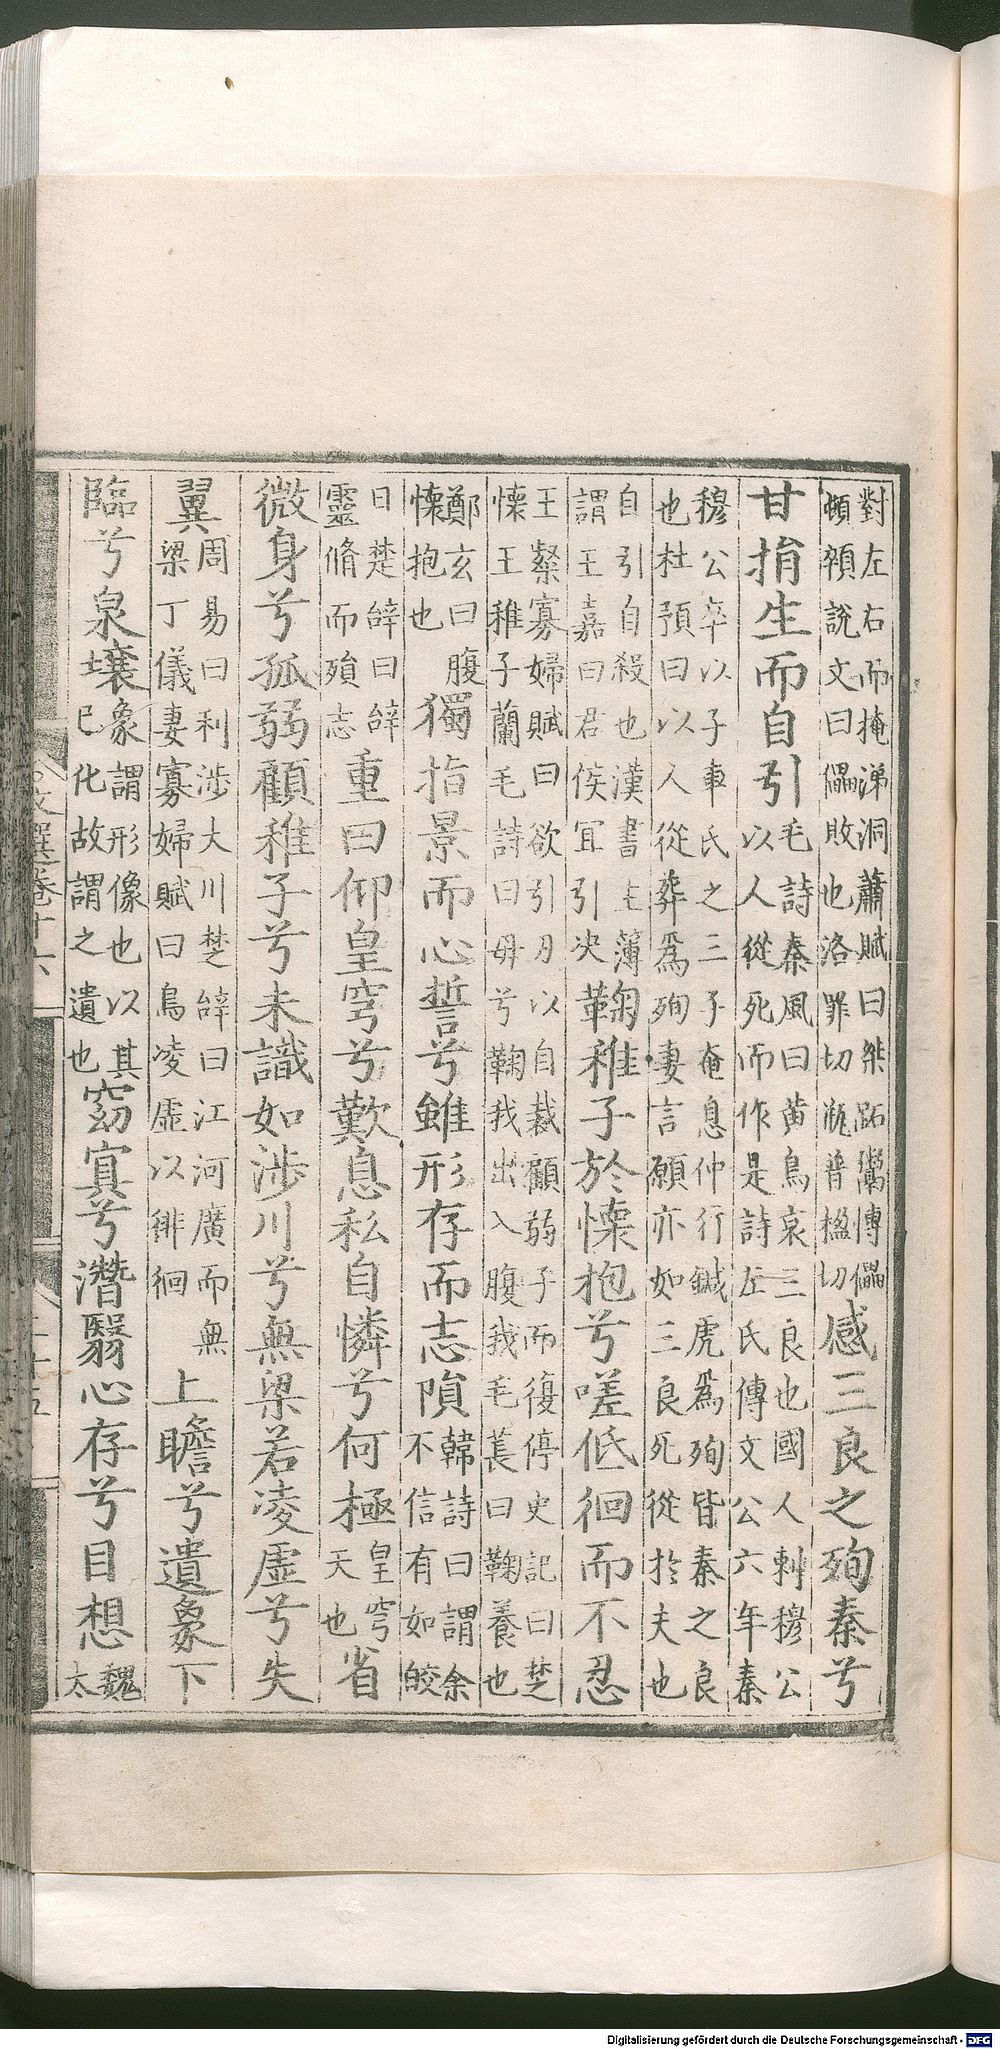 對左右而掩涕洞蕭賦曰桀跖鬻博儡
頓顇說文曰儡敗也洛罪切瓶普楹切感三良之殉秦兮
甘捐生而自引毛詩秦風曰黃鳥哀三良也國人刺穆公
以人從死而作是詩左氏傳文公六年秦
穆公卒以子車氏之三子奄息仲行鍼虎為殉皆秦之良
也杜預曰以人從葬為殉妻言願亦如三良死從於夫也
自引自殺也漢書主簿
謂王嘉曰君侯宜引决鞠稚子於懷抱兮嗟低徊而不忍
王粲寡婦賦曰欲引刀以自裁顧弱子而復停史記曰楚
懷王稚子蘭毛詩曰毋兮鞠我出入腹我毛萇曰鞠養也
鄭玄曰腹
懷抱也獨指景而心誓兮雖形存而志隕韓詩曰謂余
不信有如皎
日楚辭曰辭
靈脩而殞志重曰仰皇穹兮歎息私自憐兮何極皇穹
天也省
微身兮孤弱顧稚子兮未識如涉川兮無梁若凌虛兮失
翼周易曰利涉大川楚辭曰江河廣而無
梁丁儀妻寡婦賦曰鳥凌虛以徘徊上瞻兮遺象下
臨兮泉壤象謂形像也以其
已化故謂之遺也窈冥兮潛翳心存兮目想魏
太
文選卷十六
二十五
Digitalisierung gefördert durch die Deutsche Forschungsgemeinschaft - DFG